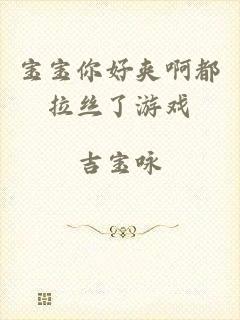 宝宝你好夹啊都
拉丝了游戏
吉宝咏